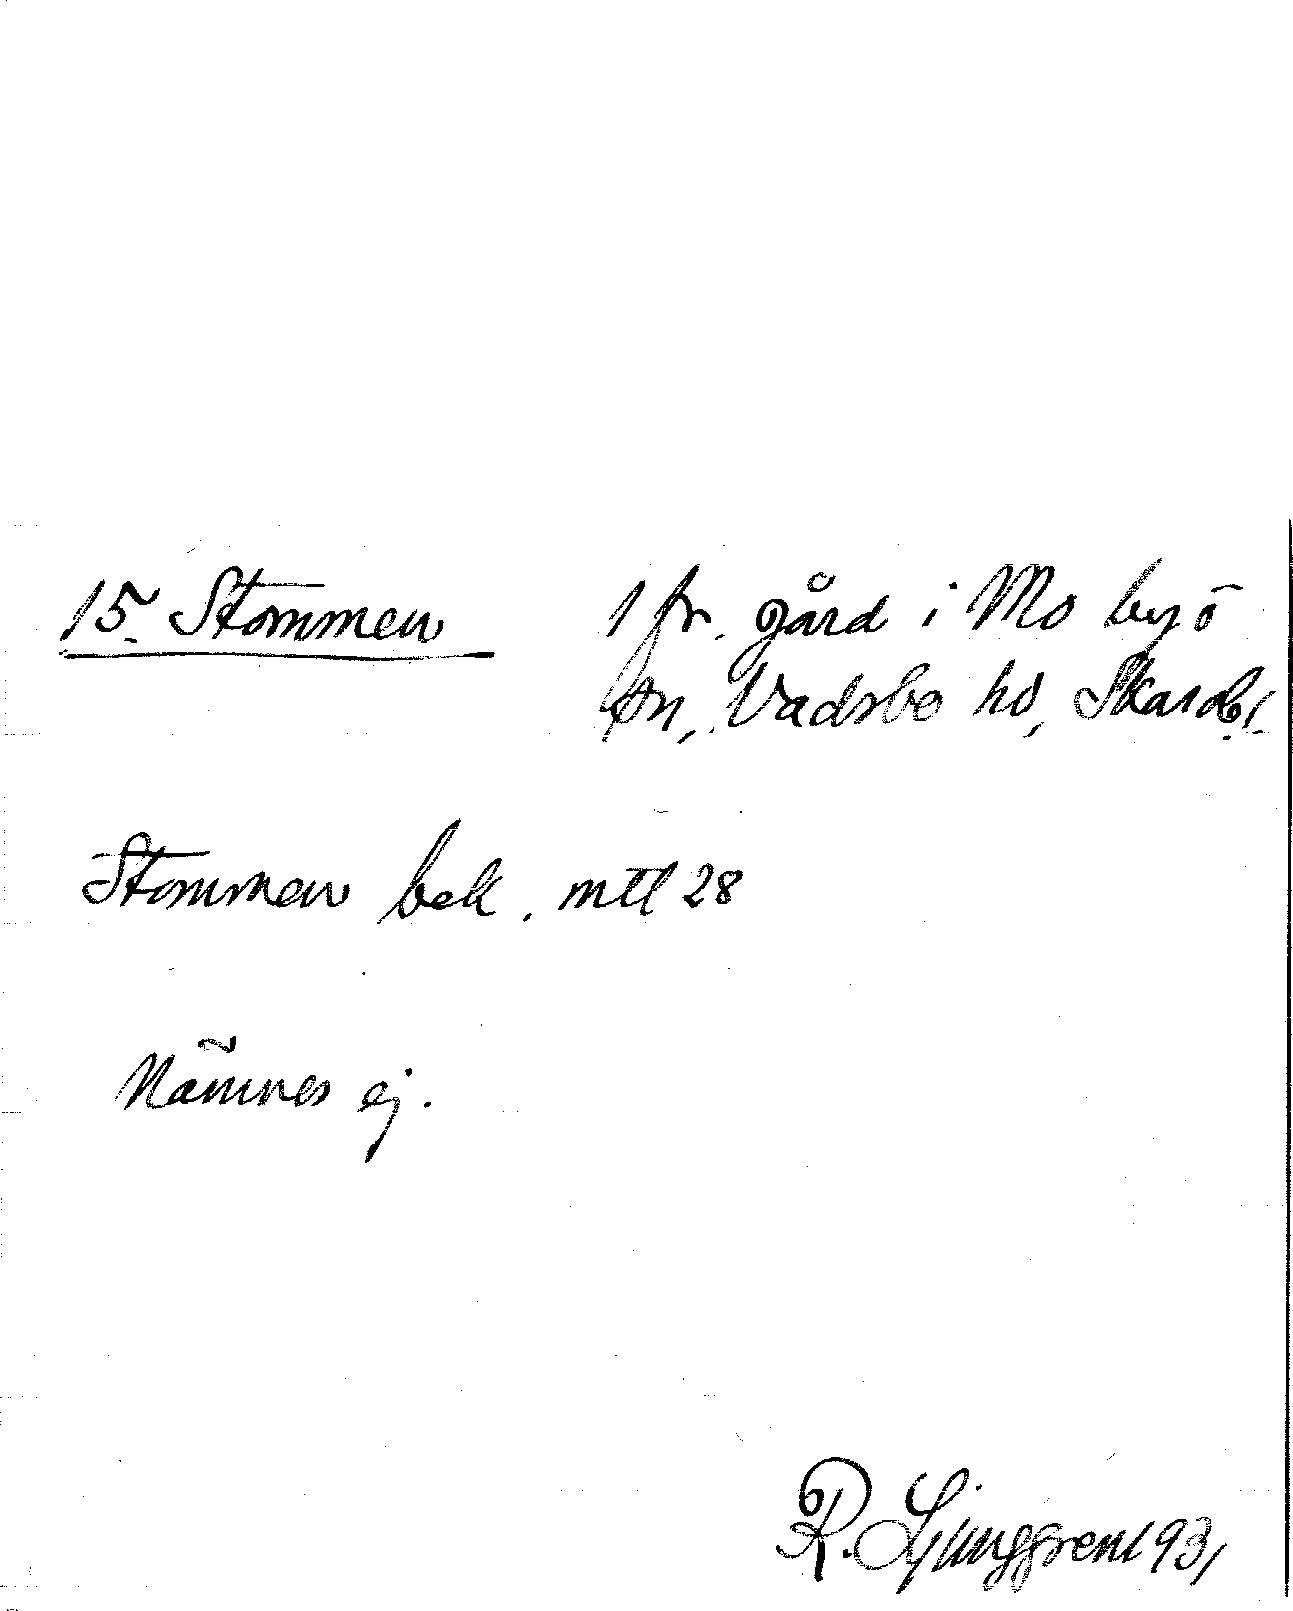 15. Stommen
1 fr. gård i Mo by o
sn, Vadsbo hd, Skarab.l.
Stommen bek. mtl 28
Nämnes ej.
R. Ljunggren 1931